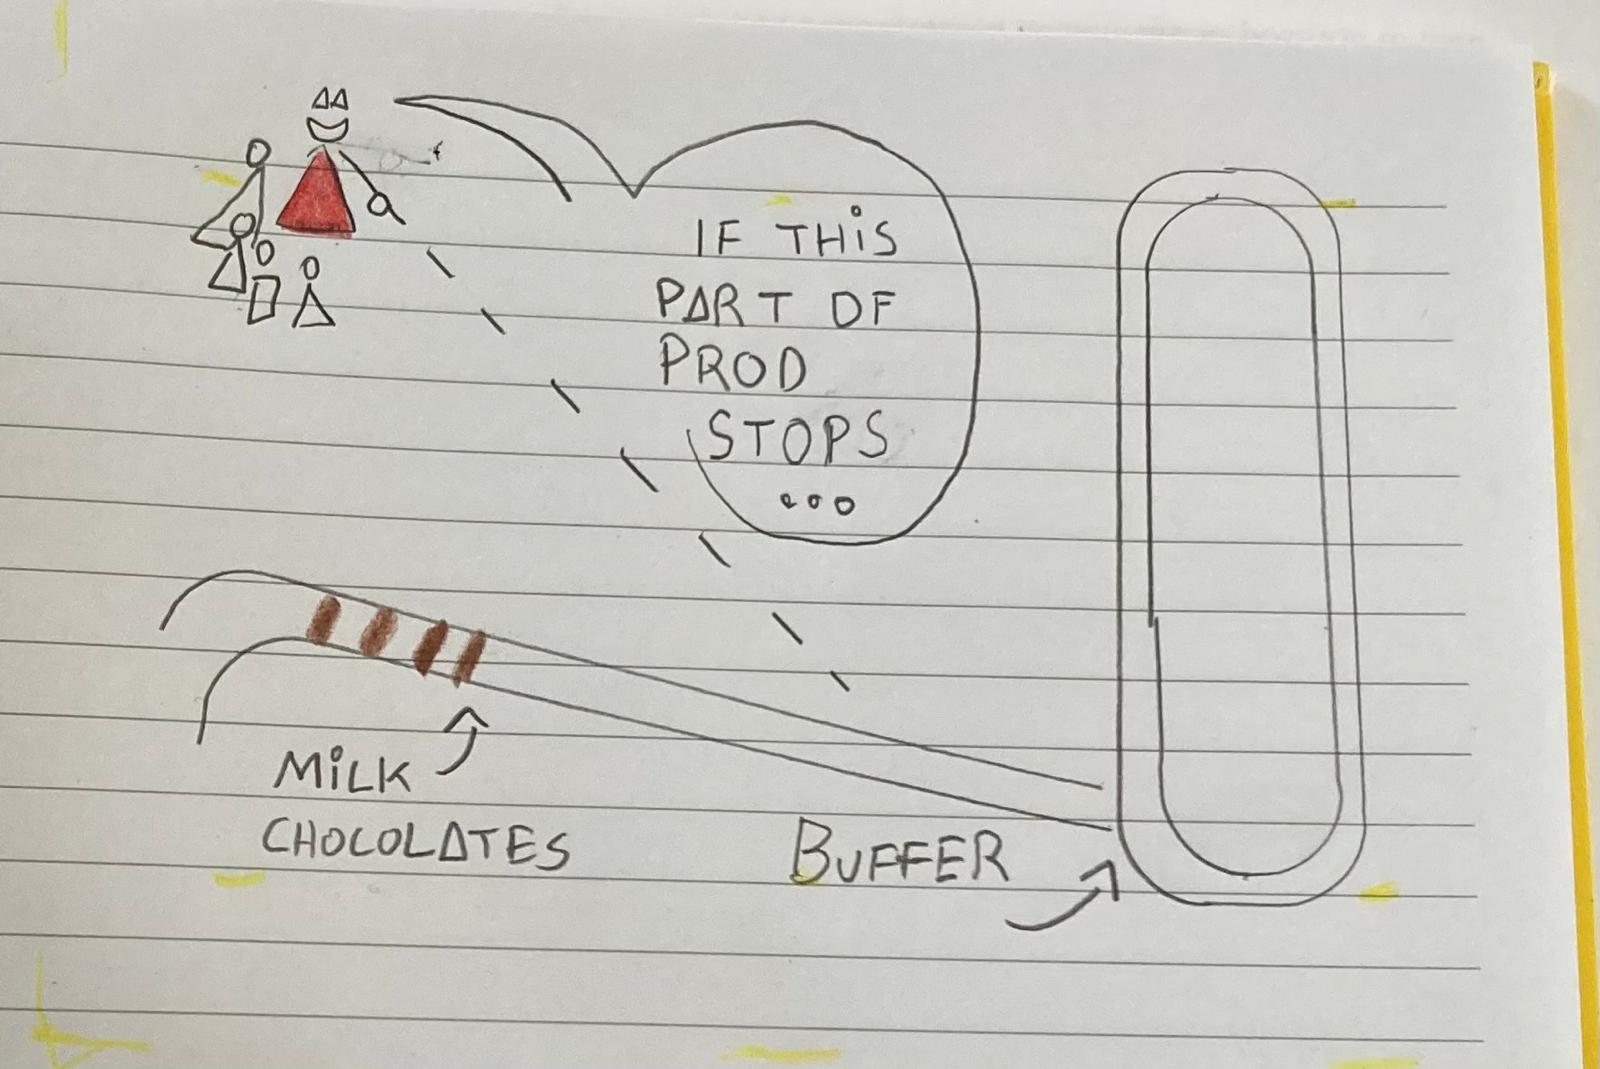 IF THiS
PART OF
PROD
STOPS
...
MiLK
CHOCOLATES
BUFFER